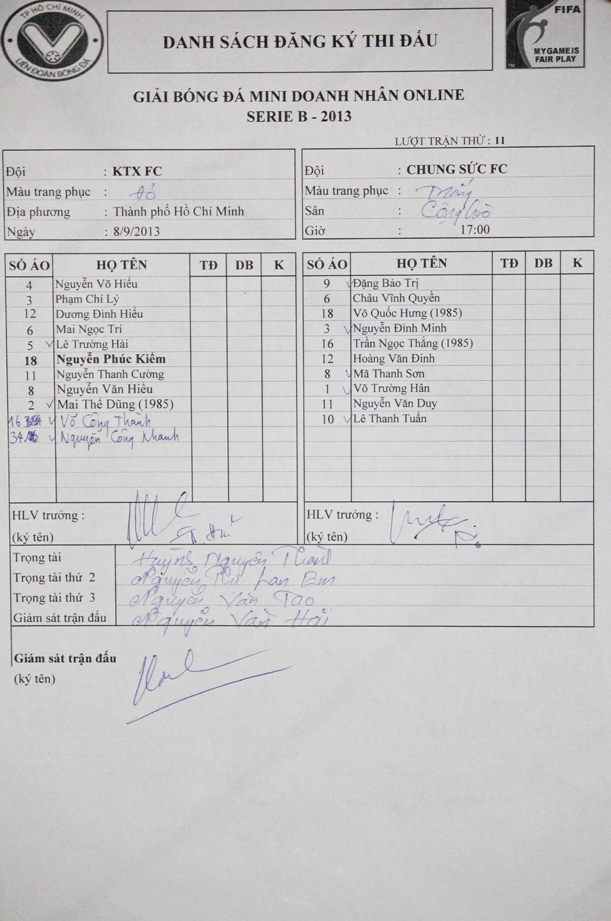 TP HỒ CHÍ MINH
LIÊN ĐOÀN BÓNG ĐÁ
DANH SÁCH ĐĂNG KÝ THI ĐẤU
FIFA
MY GAME IS
FAIR PLAY
GIẢI BÓNG ĐÁ MINI DOANH NHÂN ONLINE
SERIE B - 2013
LƯỢT TRẬN THỨ : 11
Đội : KTX FC
Màu trang phục : đỏ
Địa phương : Thành phố Hồ Chí Minh
Ngày : 8/9/2013
Đội : CHUNG SỨC FC
Màu trang phục : Trắng
Sân : Cộng hòa
Giờ : 17:00
SỐ ÁO HỌ TÊN TĐ DB K
4 Nguyễn Võ Hiếu
3 Phạm Chí Lý
12 Dương Đình Hiếu
6 Mai Ngọc Trí
5 Lê Trường Hải
18 Nguyễn Phúc Kiếm
11 Nguyễn Thanh Cường
8 Nguyễn Văn Hiếu
2 Mai Thế Dũng (1985)
16 Võ Công Thành
34 Nguyễn Công Nhanh
SỐ ÁO HỌ TÊN TĐ DB K
9 Đặng Bảo Trị
6 Châu Vĩnh Quyền
18 Võ Quốc Hưng (1985)
3 Nguyễn Đình Minh
16 Trần Ngọc Thắng (1985)
12 Hoàng Văn Đính
8 Mã Thanh Sơn
1 Võ Trường Hân
11 Nguyễn Văn Duy
10 Lê Thanh Tuấn
HLV trưởng :
(ký tên)
HLV trưởng :
(ký tên)
Trọng tài Huỳnh Nguyễn Thanh
Trọng tài thứ 2 Nguyễn Thị Lan Em
Trọng tài thứ 3 Nguyễn Văn Tạo
Giám sát trận đấu Nguyễn Văn Hải
Giám sát trận đấu
(ký tên)